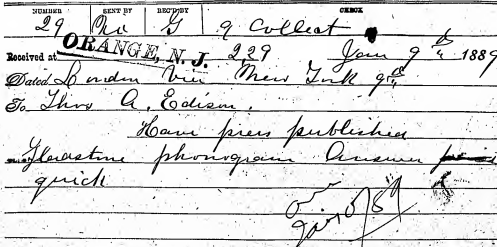 NUMBER SENT BY REC'D BY CHECK
29 No G 9 Collect
ORANGE, N. J.
Received at 229 Jany 9th 1889
Dated London Via New York 9th
To Thos A. Edison.
Have press published
Gladstone phonogram Answer
quick